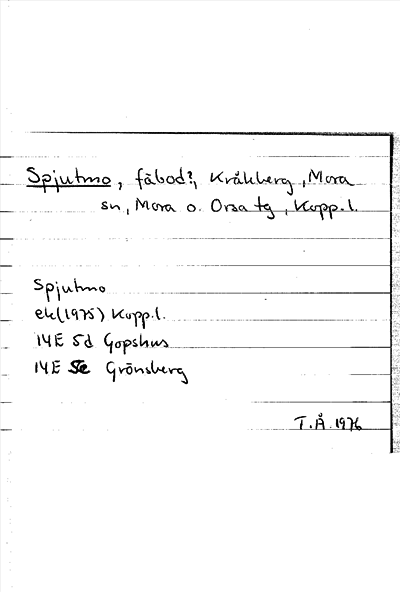 Spjutmo, fäbod?, Kråkberg, Mora
sn, Mora o. Orsa tg, Kopp.l.
Spjutmo
ek(1975) Kopp.l.
14E 5d Gopshus
14E 5e Grönsberg
T.Å. 1976